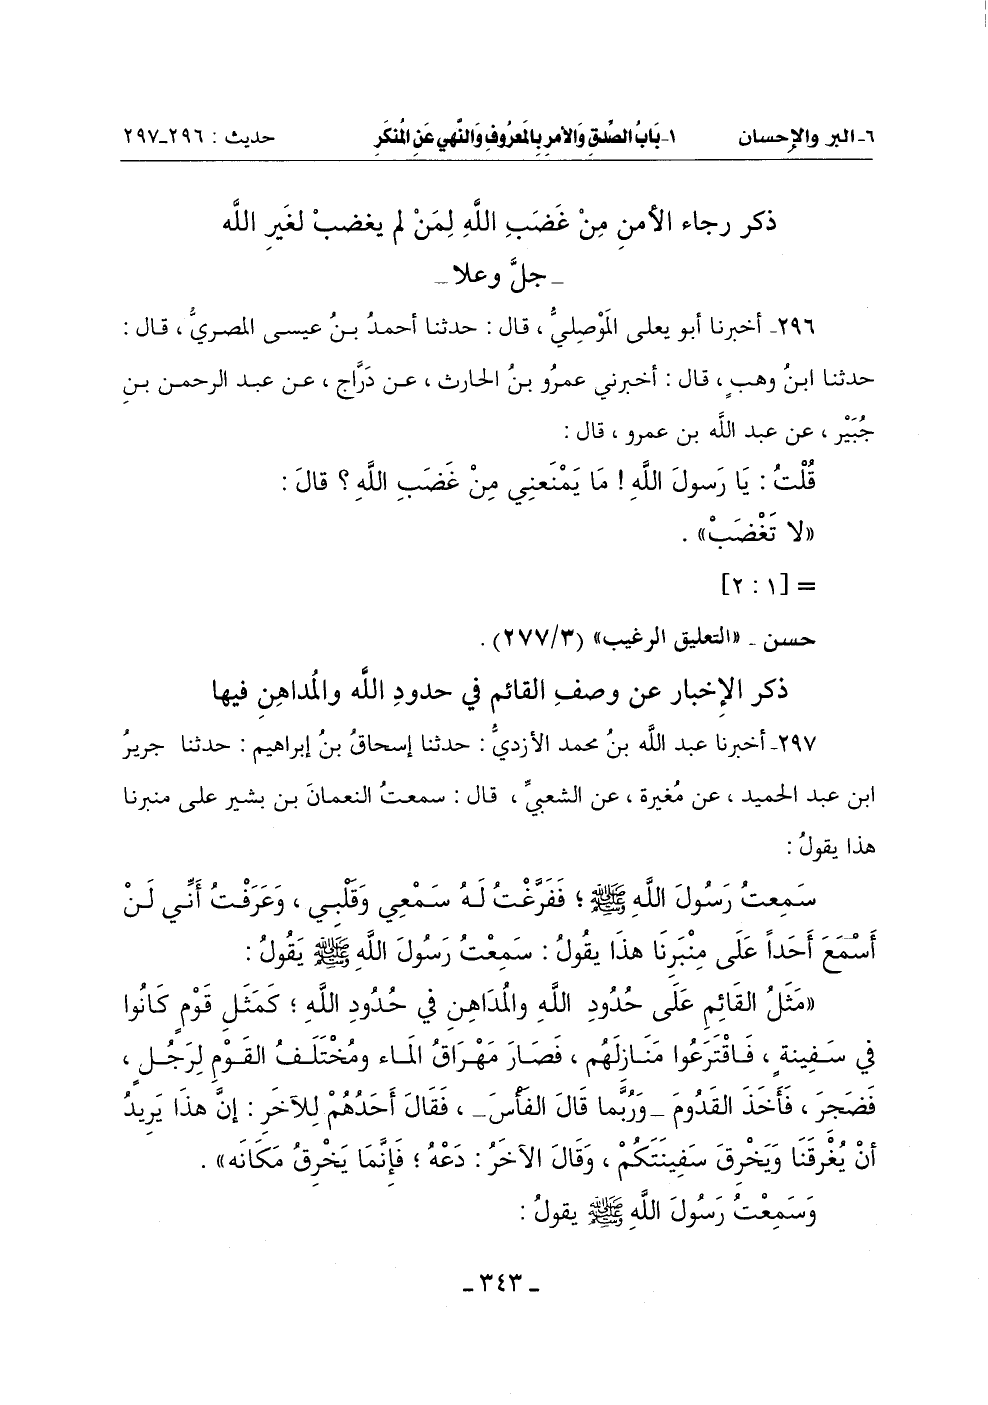 ٦- البر والإحسان ١- بَابُ الصِّدقِ وَالأمرِ بِالمَعرُوفِ وَالنَّهي عَنِ المُنكَرِ حديث : ٢٩٦-٢٩٧
ذكر رجاء الأمنِ مِنْ غَضَبِ اللَّهِ لِمَنْ لم يغضبْ لغَيرِ اللَّه
- جلَّ وعلا -
٢٩٦- أخبرنا أبو يعلى المَوْصِليُّ ، قال : حدثنا أحمدُ بنُ عيسى المصريُّ ، قال :
حدثنا ابنُ وهبٍ ، قال : أخبرني عمرُو بنُ الحارث ، عن دَرَّاج ، عن عبد الرحمن بنِ
جُبَيْر ، عن عبد اللَّه بن عمرو ، قال :
قُلْتُ : يَا رَسولَ اللَّهِ ! مَا يَمْنَعنِي مِنْ غَضَبِ اللَّهِ ؟ قالَ :
«لا تَغْضَبْ» .
= [١ : ٢]
حسن - «التعليق الرغيب» (٢٧٧/٣) .
ذكر الإخبار عن وصفِ القائم في حدودِ اللَّه والمُداهِنِ فيها
٢٩٧- أخبرنا عبد اللَّه بنُ محمد الأزديُّ : حدثنا إسحاقُ بنُ إبراهيم : حدثنا جريرُ
ابن عبد الحميد ، عن مُغيرة ، عن الشعبيِّ ، قال : سمعتُ النعمانَ بن بشير على منبرنا
هذا يقولُ :
سَمِعتُ رَسُولَ اللَّهِ ﷺ ؛ فَفَرَّغْتُ لَهُ سَمْعِي وَقَلْبِي ، وَعَرَفْتُ أَنِّي لَنْ
أَسْمَعَ أَحَداً عَلَى مِنْبَرِنَا هذَا يقولُ : سَمِعْتُ رَسُولَ اللَّهِ ﷺ يَقُولُ :
«مَثَلُ القَائِمِ عَلَى حُدُودِ اللَّهِ والمُدَاهِنِ في حُدُودِ اللَّهِ ؛ كَمَثَلِ قَوْمٍ كَانُوا
في سَفِينةٍ ، فَاقْتَرَعُوا مَنَازِلَهُم ، فَصَارَ مَهْرَاقُ المَاء ومُخْتَلَفُ القَوْمِ لِرَجُلٍ ،
فَضَجِرَ ، فَأَخَذَ القَدُومَ -وَرُبَّما قَالَ الفَأْسَ- ، فَقَالَ أَحَدُهُمْ لِلآخَرِ : إنَّ هذَا يَرِيدُ
أنْ يُغْرِقَنَا وَيَخْرِقَ سَفِينَتَكُمْ ، وَقَالَ الآخَرُ : دَعْهُ ؛ فَإِنَّمَا يَخْرِقُ مَكَانَه» .
وَسَمِعْتُ رَسُولَ اللَّهِ ﷺ يقولُ :
- ٣٤٣ -